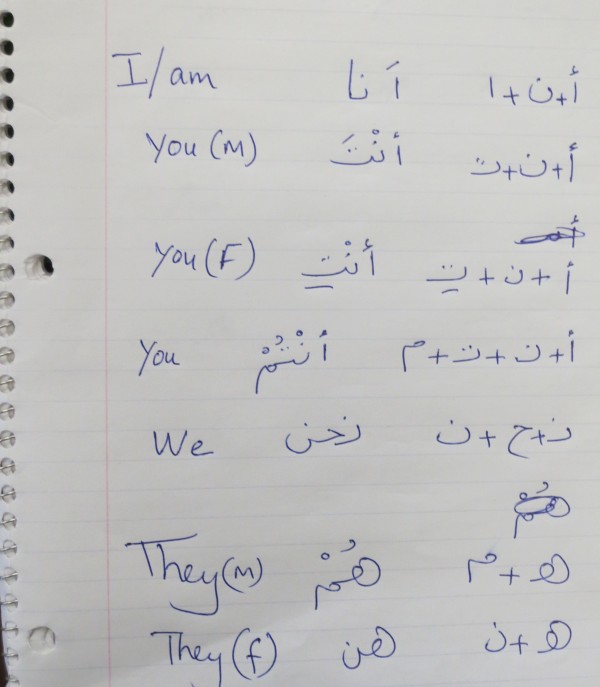 I/am أَنا أ+ن+ا
You (M) أنْتَ أ+ن+ت
You (F) أنْتِ أ+ن+تِ
You أنْتُمْ أ+ن+ت+م
We نحن ن+ح+ن
They (M) هُمْ ه+م
They (f) هن ه+ن